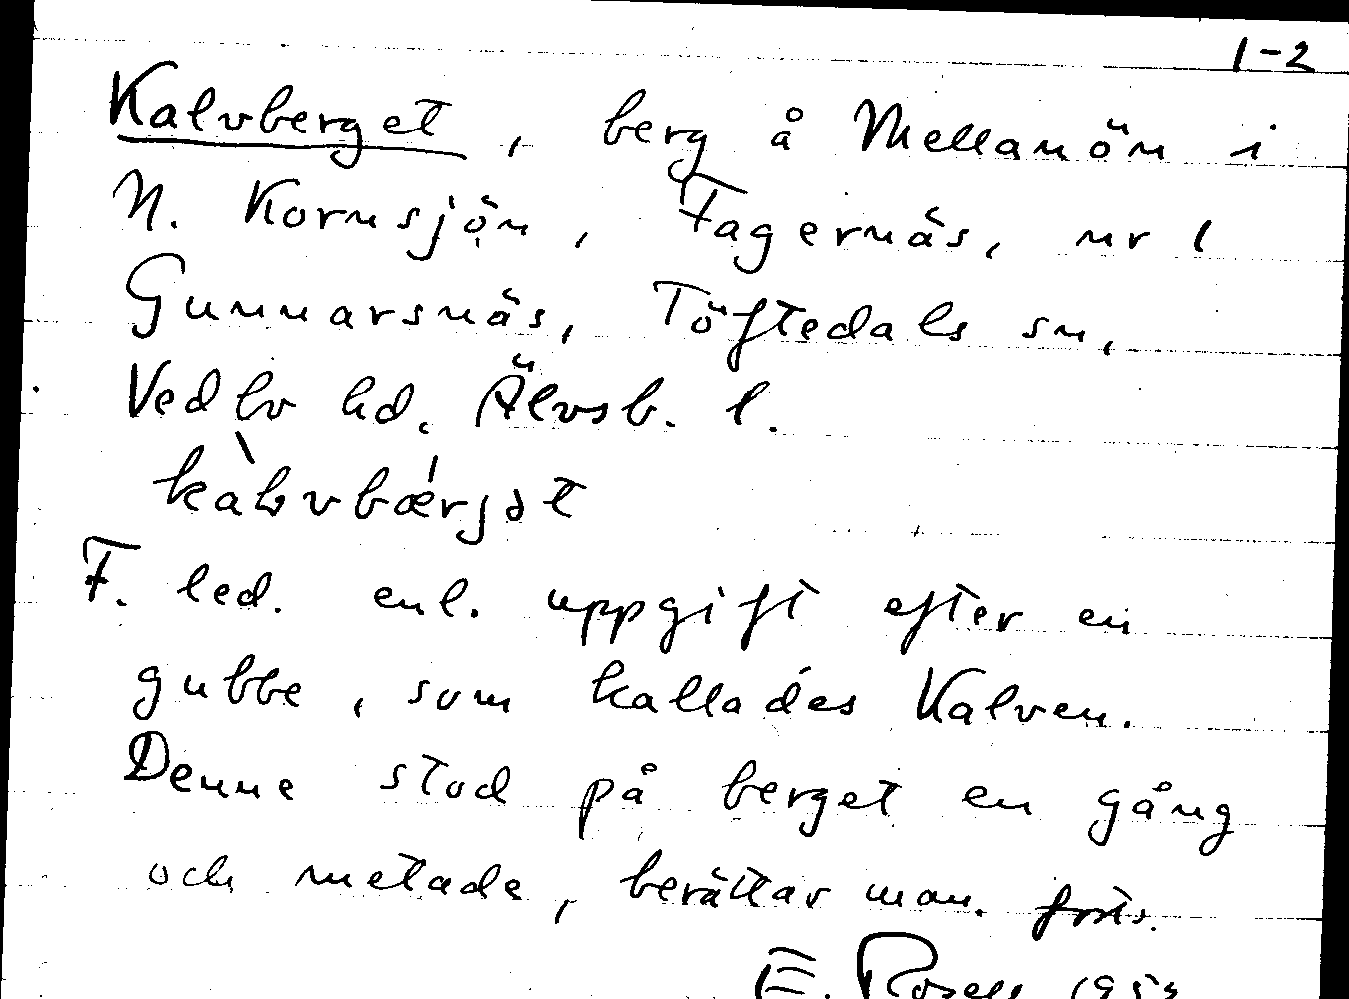 1-2
Kalvberget, berg å Mellanön i
N. Kornsjön, Fagernäs, nr 1
Gunnarsnäs, Töftedals sn,
Vedbo hd. Älvsb. l.
F. led. enl. uppgift efter en
gubbe, som kallades Kalven.
Denne stod på berget en gång
och metade, berättar man. forts.
E. Rosell